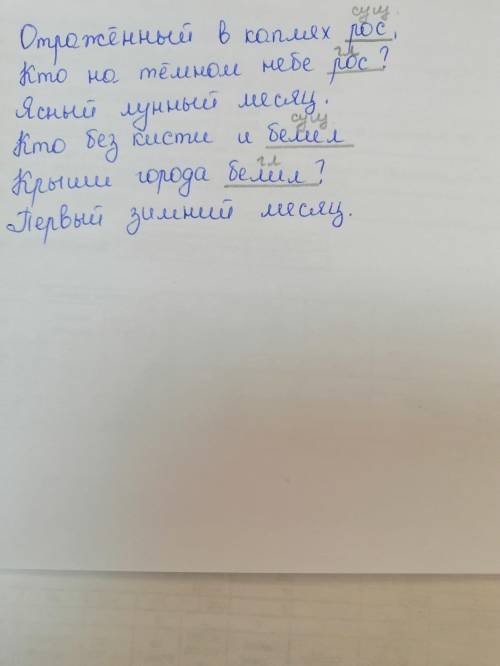 сущ.
Отражённый в каплях рос,
гл
Кто на тёмном небе рос?
Ясный лунный месяц.
сущ
Кто без кисти и белил
гл
Крыши города белил?
Первый зимний месяц.